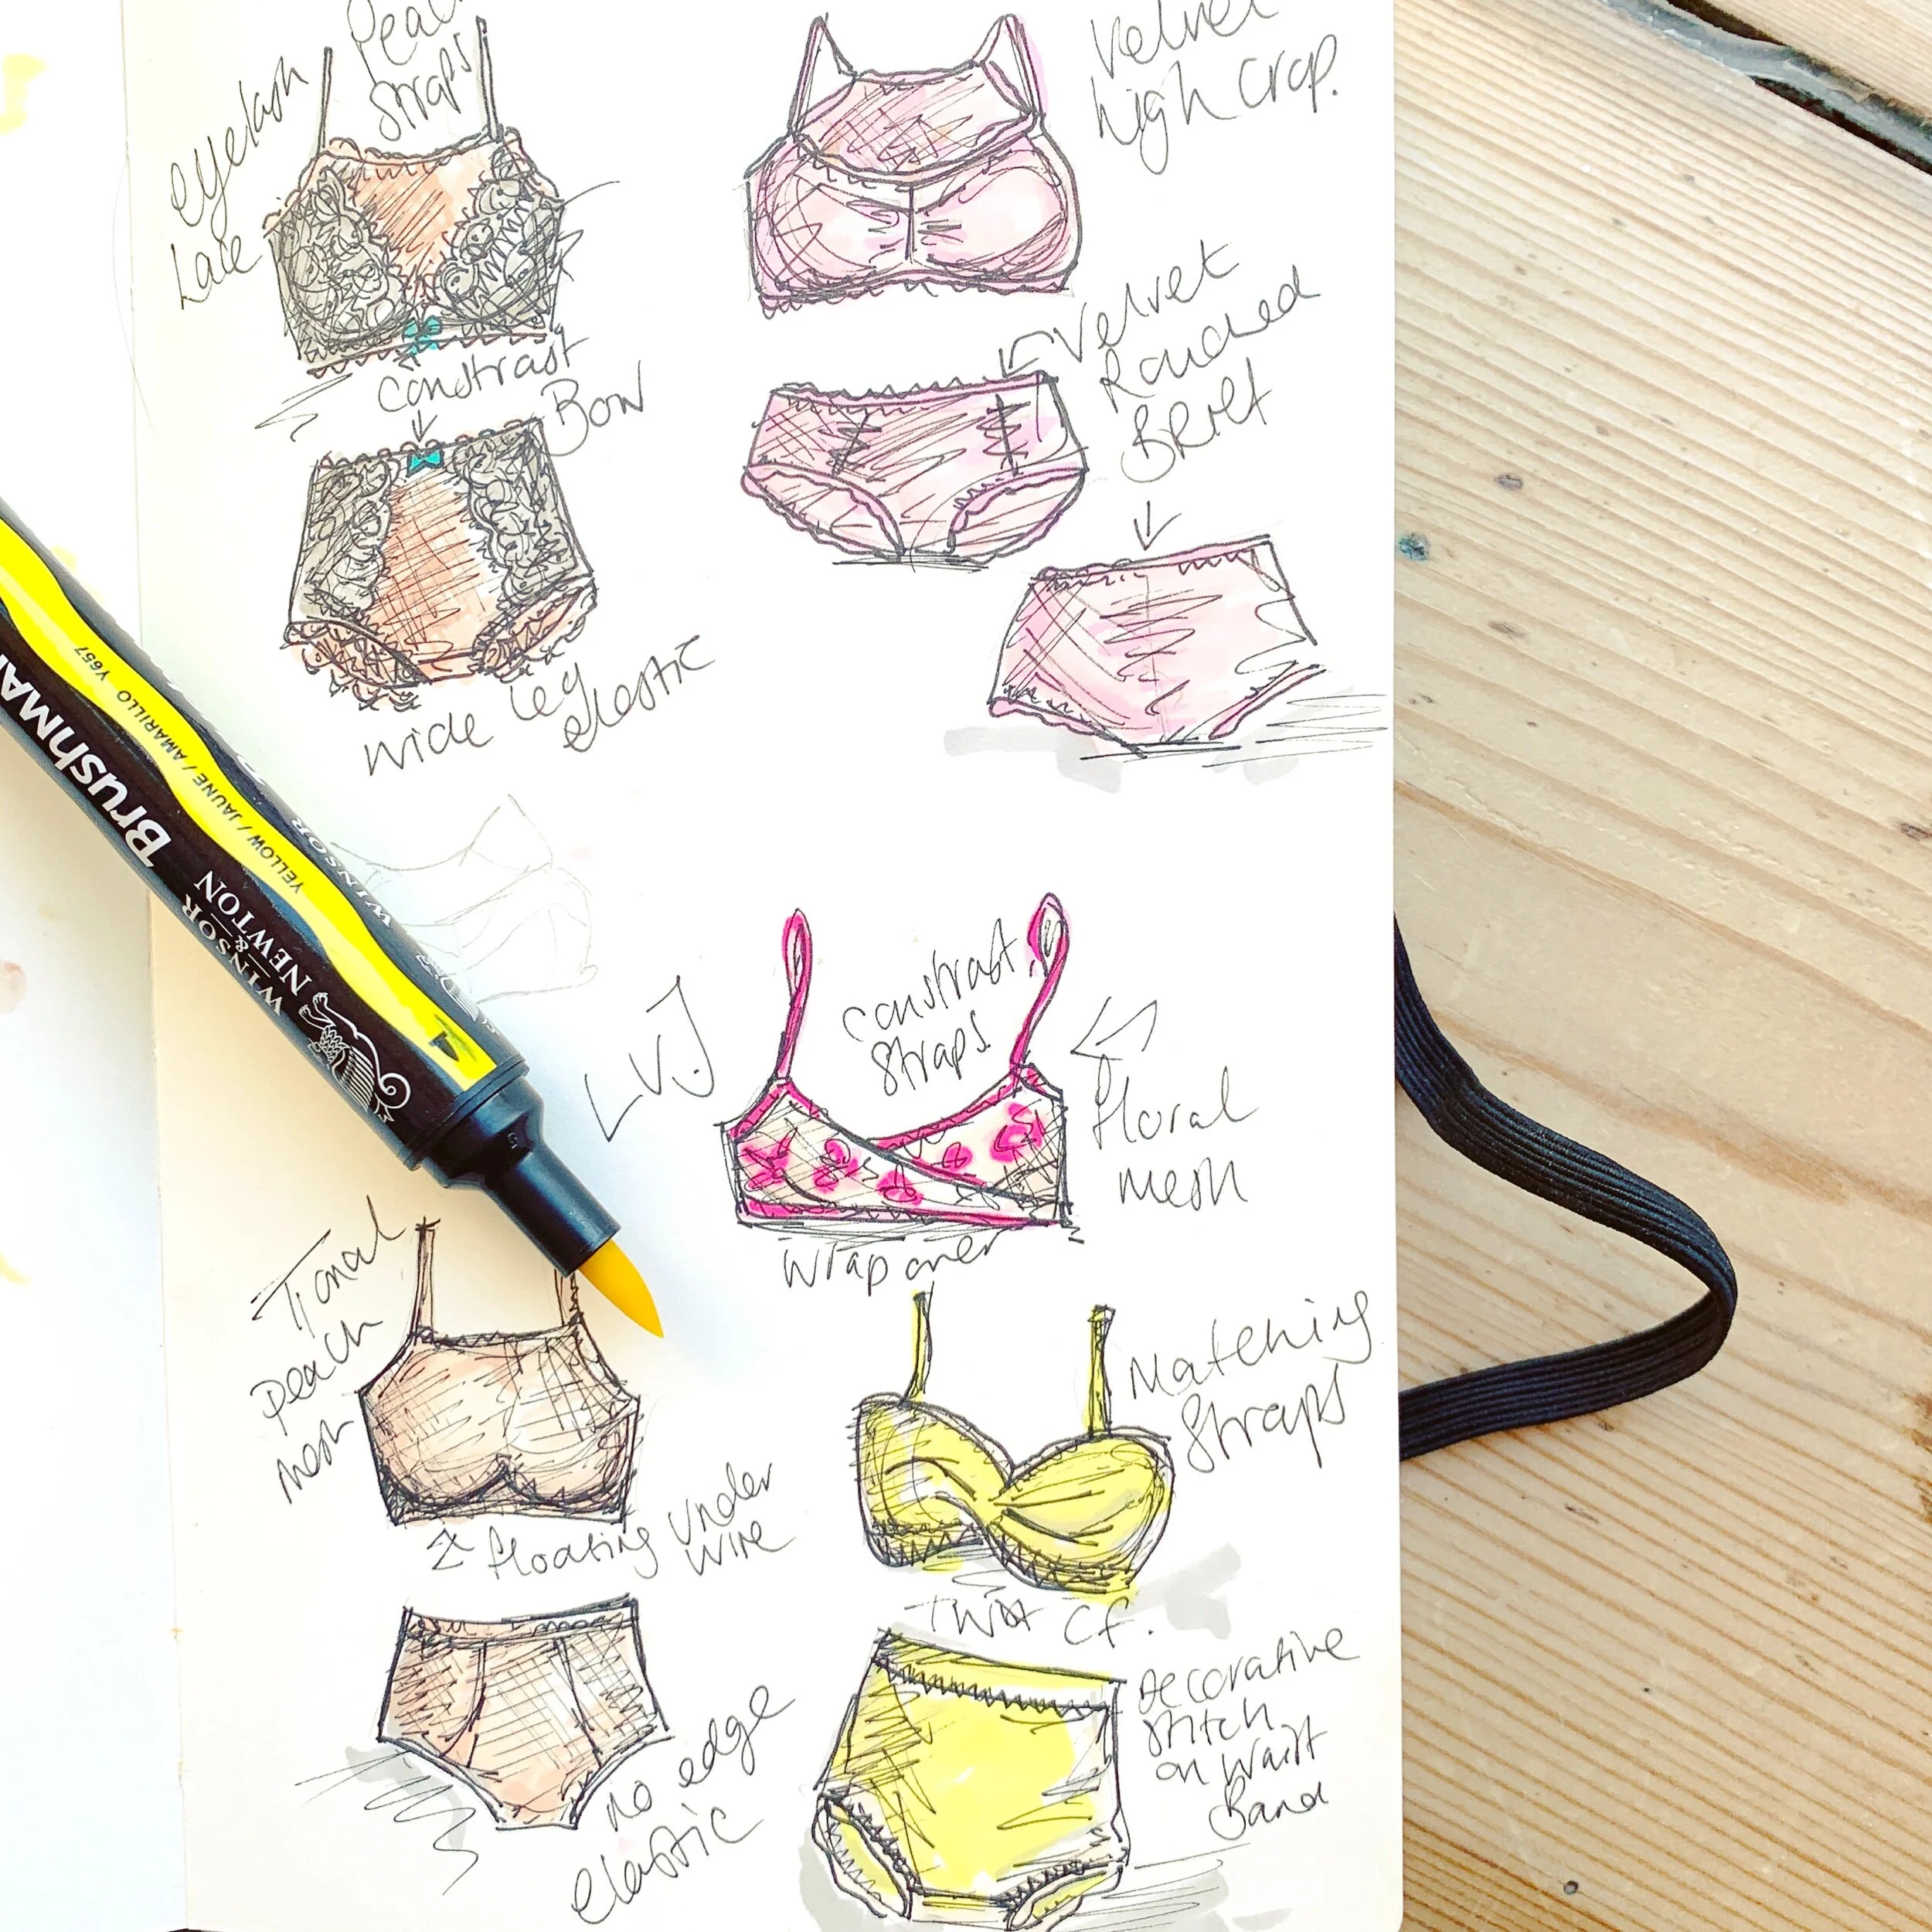 Peach
straps
eyelash
Lace
Velvet
high crop.
constrast
Bow
Velvet
Rouched
Brief
wide leg
elastic
BrushMA
YELLOW / JAUNE / AMARILLO Y657
WINSOR
& NEWTON
WINSOR
LVJ
constrast
straps
floral
mesh
wrap over
Tonal
peach
mesh
floating under
wire
Matching
straps
Twist CF.
no edge
elastic
Decorative
stitch
on waist
Band